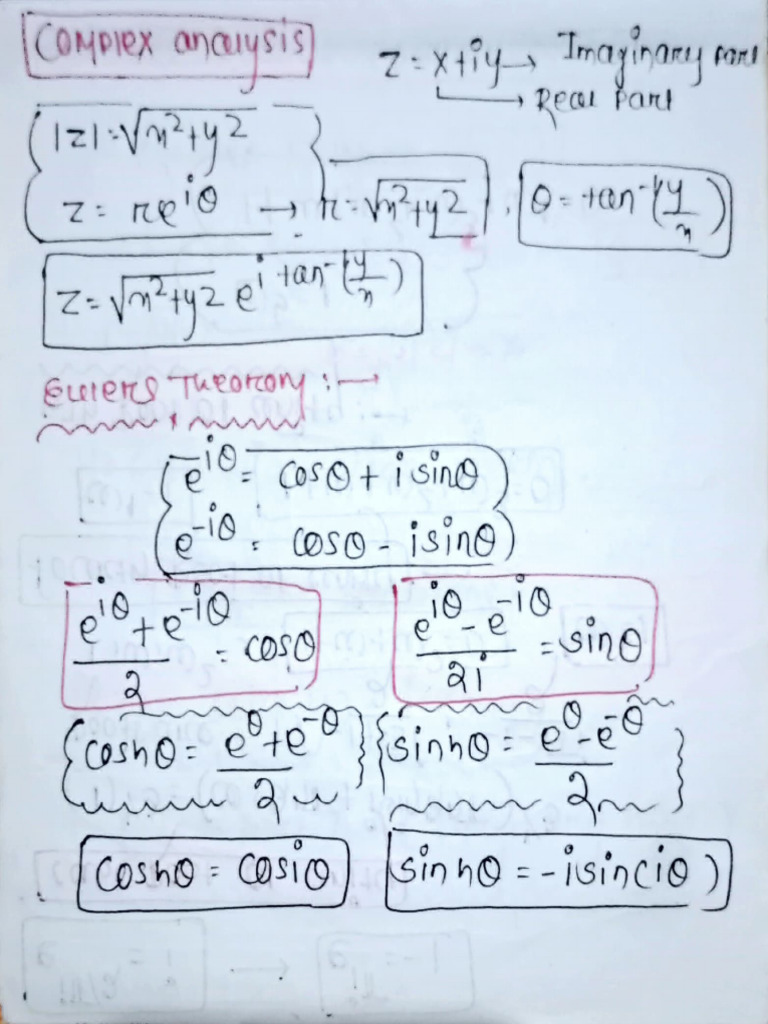 Complex analysis
z = x+iy → Imaginary part
→ Real part
|z| = √x²+y²
z = re^iθ → r = √x²+y² , θ = tan⁻¹(y/x)
z = √x²+y² e^i tan⁻¹(y/x)
Eulers Theorory :→
e^iθ = cosθ + i sinθ
e^-iθ = cosθ - i sinθ)
e^iθ + e^-iθ / 2 = cosθ
e^iθ - e^-iθ / 2i = sinθ
coshθ = e^θ + e^-θ / 2
sinhθ = e^θ - e^-θ / 2
coshθ = cosiθ
sinhθ = -isin(iθ)